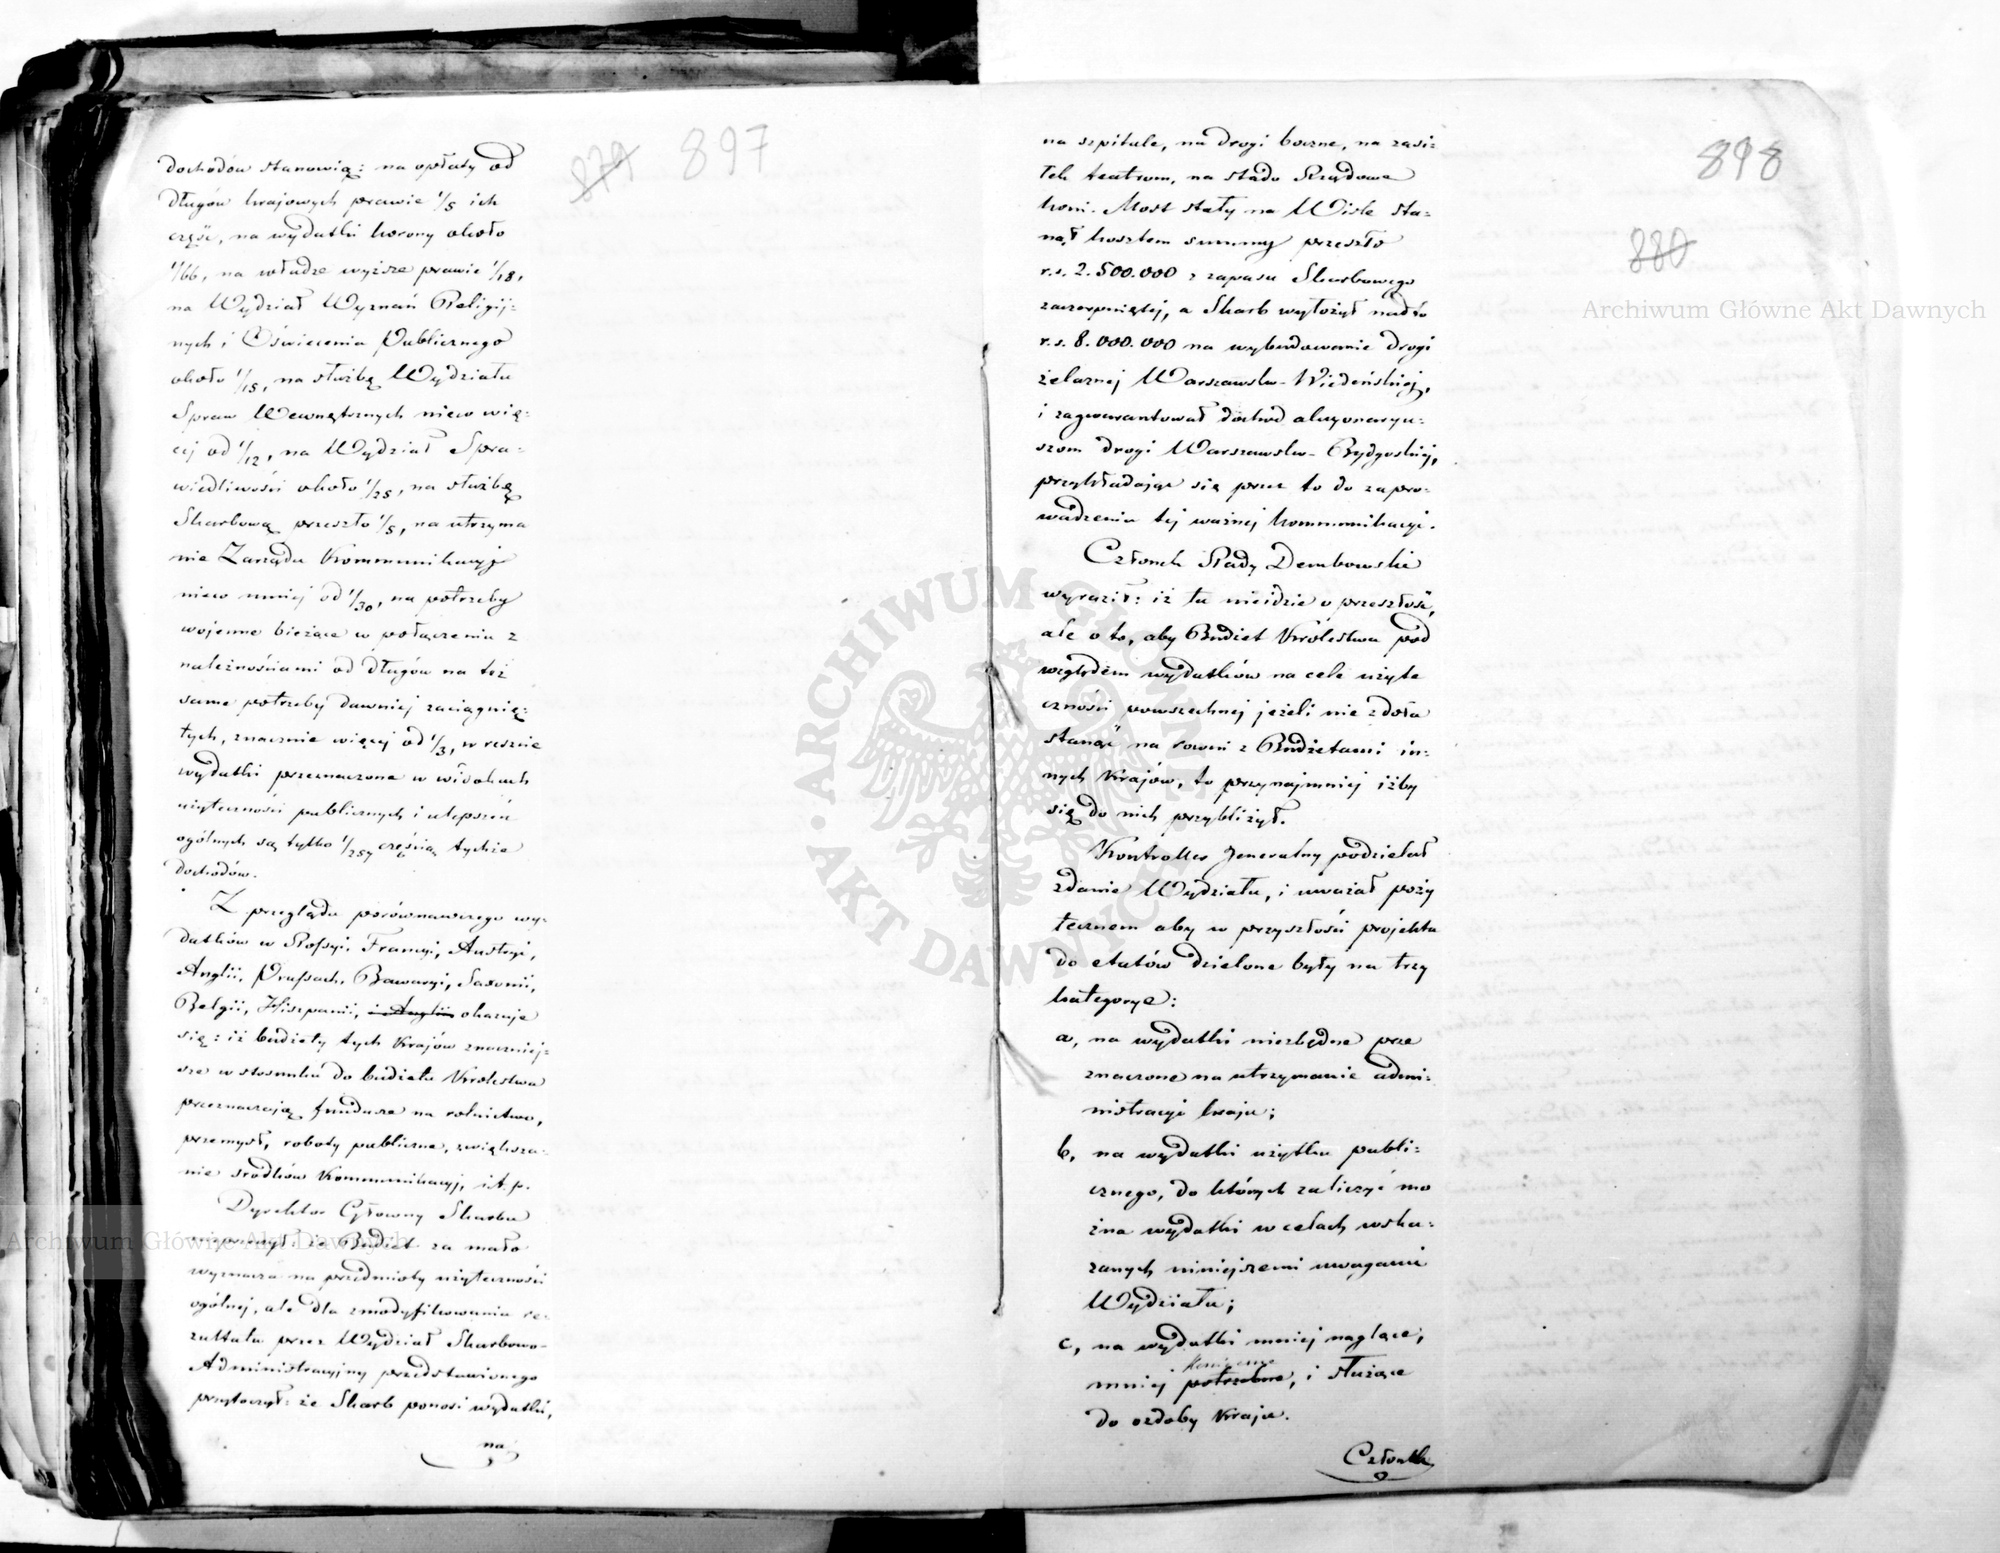 879 897
dochodów stanowią: na opłaty od
długów krajowych prawie 1/5 ich
część, na wydatki korony około
1/66, na władze wyższe prawie 1/18,
na Wydział Wyznań Religij=
nych i Oświecenia Publicznego
około 1/15, na służbę Wydziału
Spraw Wewnętrznych nieco wię=
cej od 1/12, na Wydział Spra=
wiedliwości około 1/25, na służbę
Skarbową przeszło 1/5, na utrzyma
nie Zarządu Kommunikacyj
nieco mniej od 1/30, na potrzeby
wojenne bieżące w połączeniu z
należnościami od długów na też
same potrzeby dawniej zaciągnię=
tych, znacznie więcej od 1/3, w reszcie
wydatki przeznaczone w widokach
użyteczności publicznych i ulepszeń
ogólnych są tylko 1/257 częścią tychże
dochodów.
Z przeglądu porównawczego wy=
datków w Rossyi, Francyi, Austryi,
Anglii, Prussach, Bawaryi, Saxonii,
Belgii, Hiszpanii, i Anglii okazuje
się: iż budżety tych Krajów znaczniej=
sze w stosunku do budżetu Królestwa
przeznaczają fundusze na rolnictwo,
przemysł, roboty publiczne, zwiększa=
nie srodków Kommunikacyj, i t. p.
Dyrektor Główny Skarbu
wspomniał: że Budżet za mało
wyznacza na przedmioty użyteczności
ogólnej, ale dla zmodyfikowania re=
zultatu przez Wydział Skarbowo-
Administracyjny przedstawionego
przytoczył: że Skarb ponosi wydatki,
na
898
880
na szpitale, na drogi boczne, na zasi=
łek teatrom, na stado Rządowe
koni. Most stały na Wiśle sta=
nął kosztem summy przeszło
r.s. 2.500.000 z zapasu Skarbowego
zaczerpniętej, a Skarb wyłożył nadto
r.s. 8.000.000 na wybudowanie drogi
żelaznej Warszawsko-Wiedeńskiej,
i zagwarantował dochód akcyonaryu=
szom drogi Warszawsko-Bydgoskiej,
przykładając się przez to do zapro=
wadzenia tej ważnej kommunikacyi.
Członek Rady Dembowski
wyraził: iż tu nieidzie o przeszłość,
ale o to, aby Budżet Królestwa pod
względem wydatków na cele użyte
czności powszechnej jeżeli nie zdoła
stanąć na rowni z Budżetami in=
nych Krajów, to przynajmniej iżby
się do nich przybliżył.
Kontroller Jeneralny podzielał
zdanie Wydziału, i uważał poży
tecznem aby w przyszłości projekta
do etatów dzielone były na trzy
kategorye:
a, na wydatki niezbędne prze
znaczone na utrzymanie admi=
nistracyi kraju;
b, na wydatki użytku publi=
cznego, do których zaliczyć mo
żna wydatki w celach wska=
zanych niniejszemi uwagami
Wydziału;
c, na wydatki mniej naglące,
konieczne
mniej potrzebne, i służące
do ozdoby Kraju.
Członek
Archiwum Główne Akt Dawnych
Archiwum Główne Akt Dawnych
ARCHIWUM GŁÓWNE · AKT DAWNYCH ·